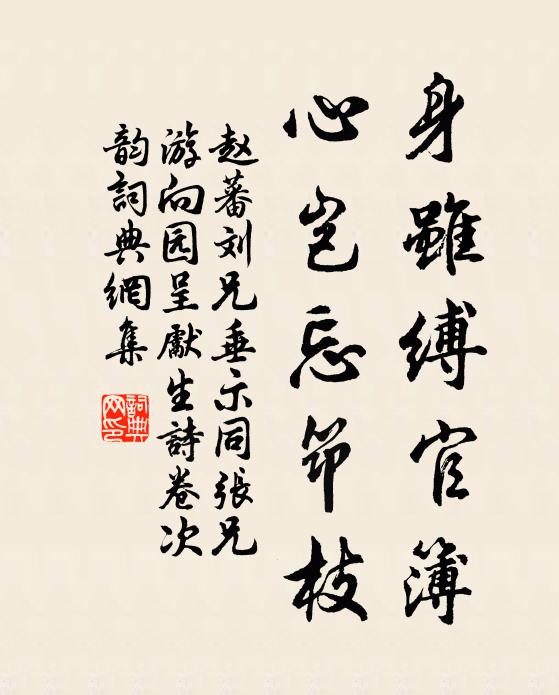 身雖縛官簿
心岂忘笻枝
赵蕃刘兄垂示同張兄
游向园呈獻生詩卷次
韵詞典網集
詞典
网印